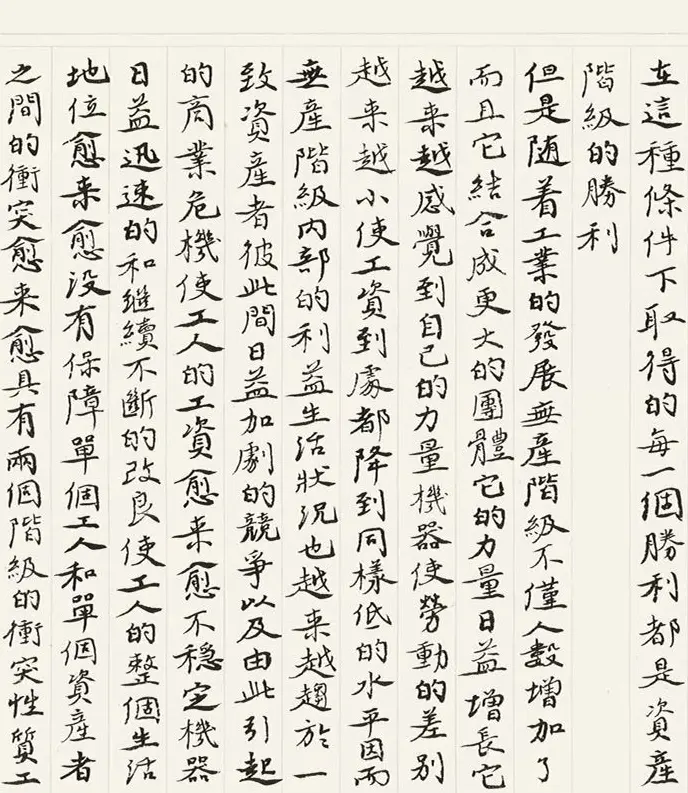 在這種條件下取得的每一個勝利都是資産
階級的勝利
但是随着工業的發展無産階級不僅人數增加了
而且它結合成更大的團體它的力量日益增長它
越来越感覺到自己的力量機器使勞動的差别
越来越小使工資到處都降到同樣低的水平因而
無産階級内部的利益生活狀况也越来越趨於一
致資産者彼此間日益加劇的競爭以及由此引起
的商業危機使工人的工資愈来愈不穩定機器
日益迅速的和繼續不斷的改良使工人的整個生活
地位愈来愈没有保障單個工人和單個資産者
之間的衝突愈来愈具有兩個階級的衝突性質工